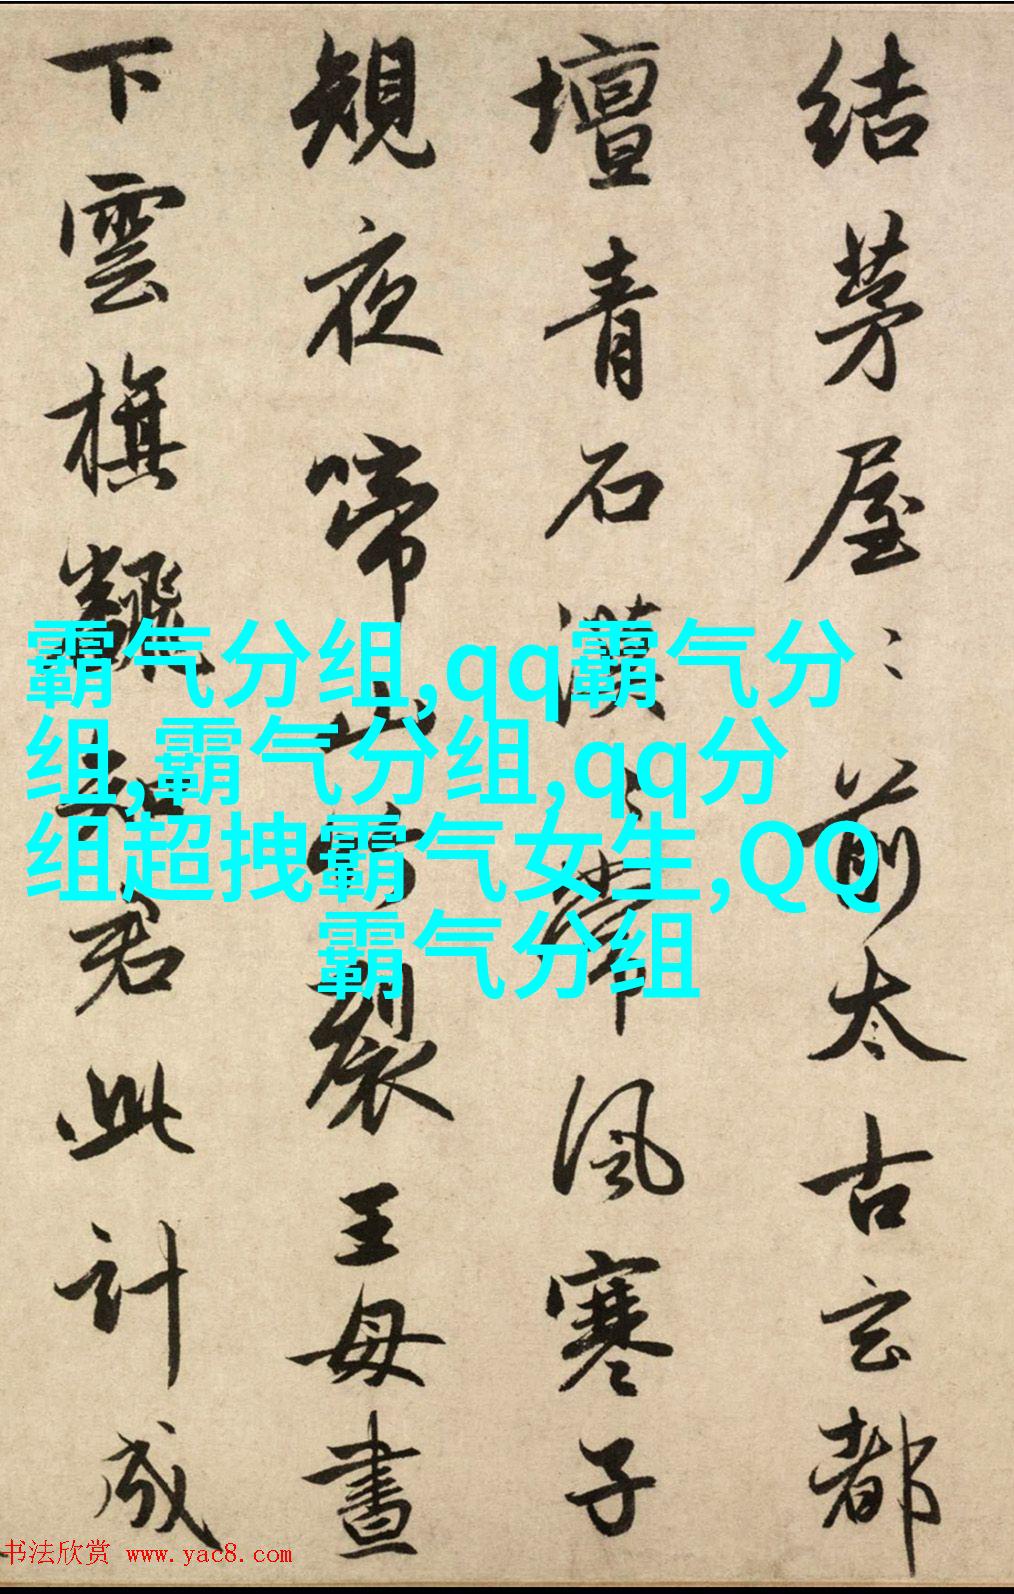 结茅屋〻前太古玄都
壇青石漠〻常風寒子
䂓夜啼山竹裂王母晝
下雲旗飜知君此計成
霸气分组,qq霸气分
组,霸气分组,qq分
组超拽霸气女生,QQ
霸气分组
书法欣赏 www.yac8.com